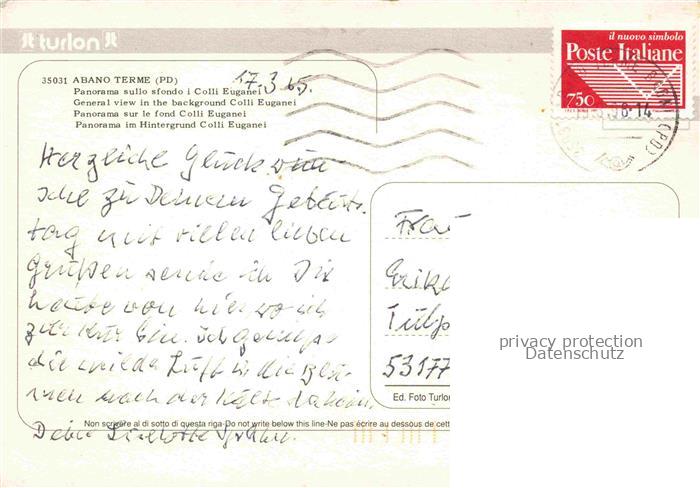 turlon
il nuovo simbolo
Poste Italiane
750
35031 ABANO TERME (PD)
Panorama sullo sfondo i Colli Euganei
General view in the background Colli Euganei
Panorama sur le fond Colli Euganei
Panorama im Hintergrund Colli Euganei
Herzliche Glückwün
sche zu Deinem Geburts
tag mit vielen lieben
Grüßen sende ich Dir
heute von hier wo ich
zur Kur bin. Ich genieße
die milde Luft
nach der Kälte daheim.
Deine
Frau
Erika
53177
privacy protection
Datenschutz
Ed. Foto Turlon
Non scrivere al di sotto di questa riga-Do not write below this line-Ne pas écrire au dessous de cett